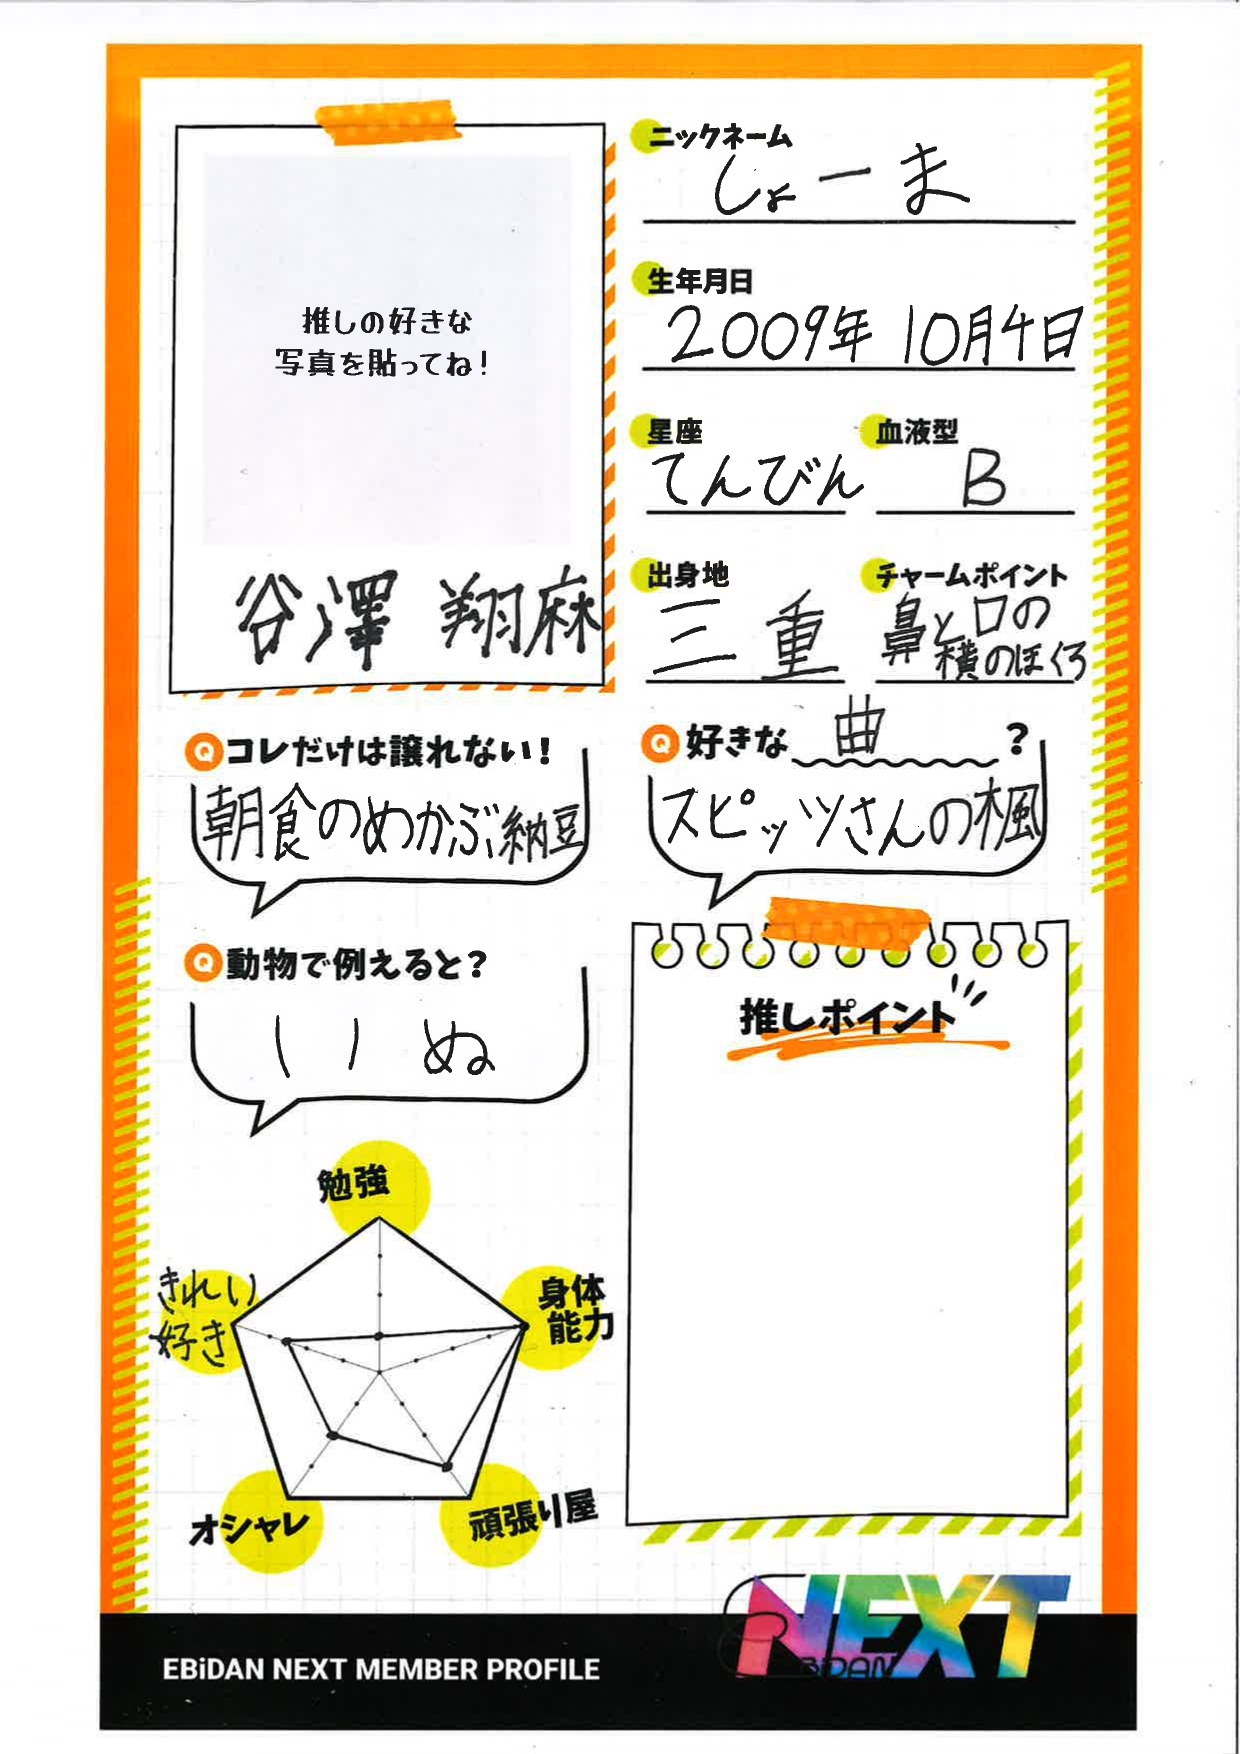 推しの好きな
写真を貼ってね！
谷澤 翔麻
ニックネーム
しょーま
生年月日
2009年 10月4日
星座
てんびん
血液型
B
出身地
三重
チャームポイント
鼻と口の
横のほくろ
Q コレだけは譲れない！
朝食のめかぶ納豆
Q 好きな 曲 ？
スピッツさんの楓
Q 動物で例えると？
いぬ
推しポイント
勉強
きれい
好き
身体
能力
オシャレ
頑張り屋
EBiDAN NEXT MEMBER PROFILE
NEXT
EBiDAN